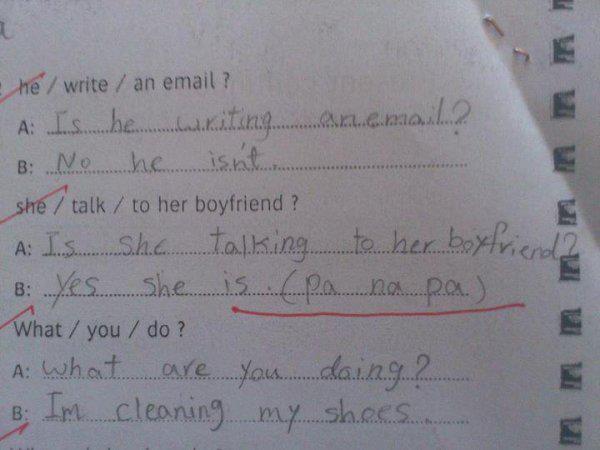 he / write / an email ?
A: Is he writing an email?
B: No he isn't.
she / talk / to her boyfriend ?
A: Is she talking to her boyfriend?
B: Yes she is. (pa na pa)
What / you / do ?
A: What are you doing?
B: Im cleaning my shoes.